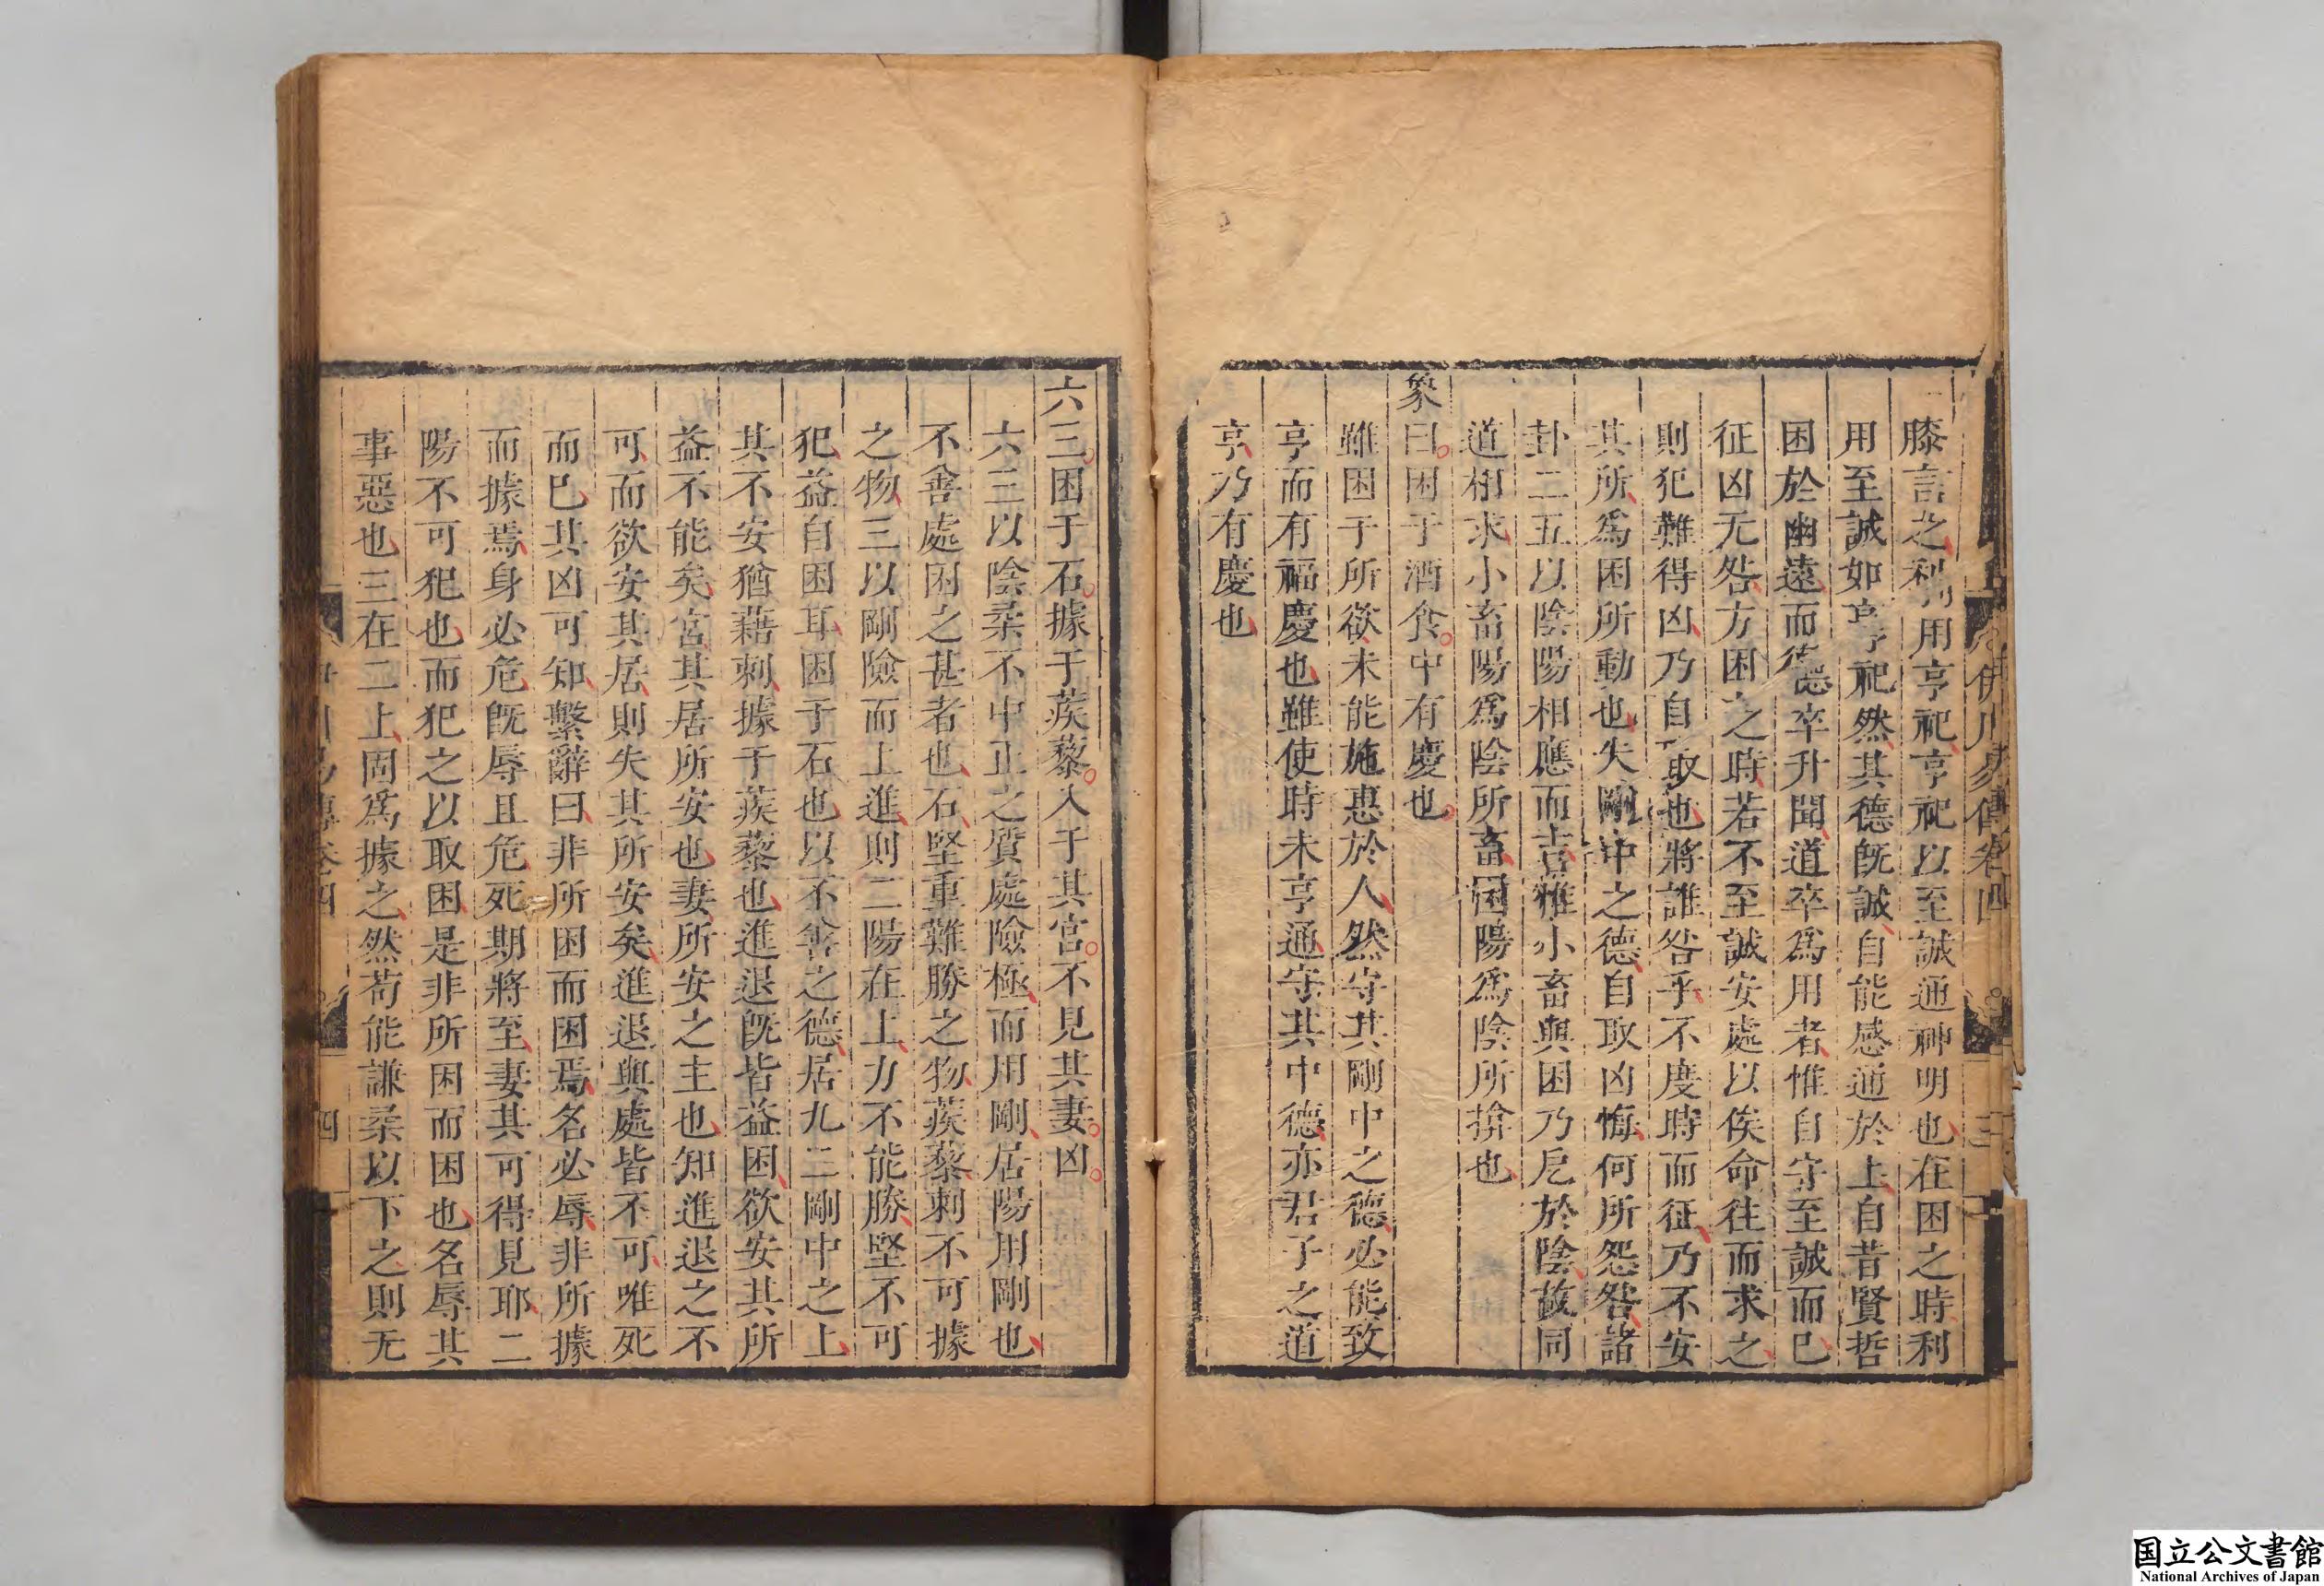 伊川易傳卷四
三
膝言之利用亨祀亨祀以至誠通神明也在困之時利
用至誠如亨祀然其德旣誠自能感通於上自昔賢哲
困於幽遠而德卒升聞道卒爲用者惟自守至誠而已
征凶无咎方困之時若不至誠安處以俟命往而求之
則犯難得凶乃自取也將誰咎乎不度時而征乃不安
其所爲困所動也失剛中之德自取凶悔何所怨咎諸
卦二五以陰陽相應而吉雅小畜與困乃戹於陰故同
道相求小畜陽爲陰所畜困陽爲陰所揜也
象曰困于酒食中有慶也
雖困于所欲未能施惠於人然守其剛中之德必能致
亨而有福慶也雖使時未亨通守其中德亦君子之道
亨乃有慶也
六三困于石據于蒺藜入于其宮不見其妻凶
六三以陰柔不中正之質處險極而用剛居陽用剛也
不善處困之甚者也石堅重難勝之物蒺藜刺不可據
之物三以剛險而上進則二陽在上力不能勝堅不可
犯益自困耳困于石也以不善之德居九二剛中之上
其不安猶藉刺據于蒺藜也進退旣皆益困欲安其所
益不能矣宮其居所安也妻所安之主也知進退之不
可而欲安其居則失其所安矣進退與處皆不可唯死
而已其凶可知繫辭曰非所困而困焉名必辱非所據
而據焉身必危旣辱且危死期將至妻其可得見耶二
陽不可犯也而犯之以取困是非所困而困也名辱其
事惡也三在二上固爲據之然苟能謙柔以下之則无
四
国立公文書館
National Archives of Japan